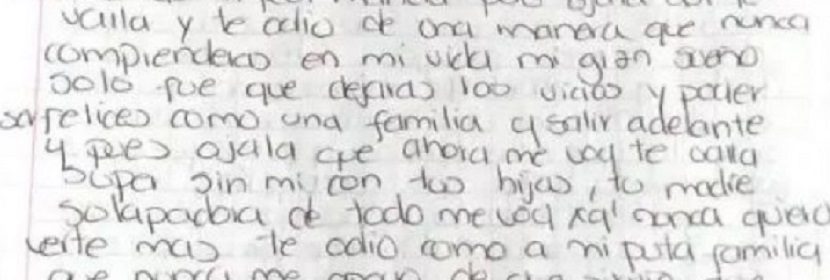 vaila y te odio de una manera que nunca
comprenderas en mi vida mi gran sueño
solo fue que dejaras los vicios y poder
ser felices como una familia y salir adelante
y pues ojala que ahora me voy te vaila
supa sin mi con tus hijas, tu madre
solapadora de todo me voy xq' nunca quiero
verte mas te odio como a mi puta familia
que nunca me